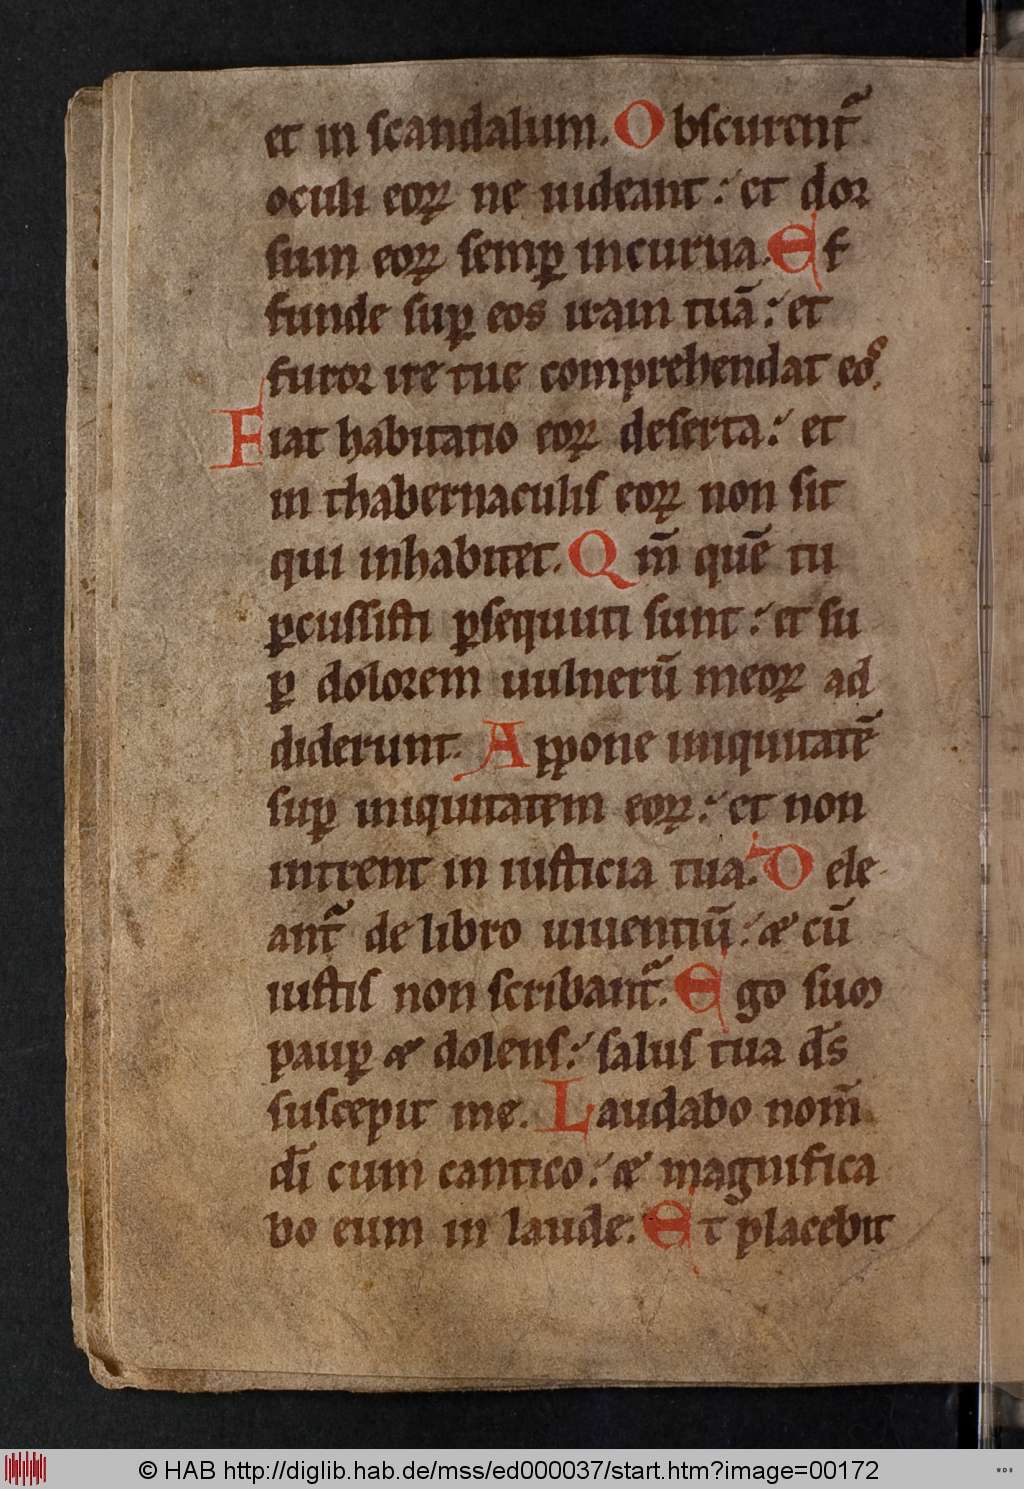 et in scandalum. Obscurent᷑
oculi eoꝝ ne uideant : et dor
sum eoꝝ semꝑ incurua. Ef
funde suꝑ eos iram tuā : et
furor ire tue comprehendat eos.
Fiat habitatio eoꝝ deserta : et
in thabernaculis eoꝝ non sit
qui inhabitet. Qm̄ quē tu
ꝑcussisti ꝑsequuti sunt : et su
ꝑ dolorem uulnerū meoꝝ ad
diderunt. Appone iniquitatē
suꝑ iniquitatem eoꝝ : et non
intrent in iusticia tua. Dele
ant᷑ de libro uiuentiū : & cū
iustis non scribant᷑. Ego sum
pauꝑ & dolens : salus tua ds̄
suscepit me. Laudabo nom̄
dī cum cantico : & magnifica
bo eum in laude. Et placebit
© HAB http://diglib.hab.de/mss/ed000037/start.htm?image=00172